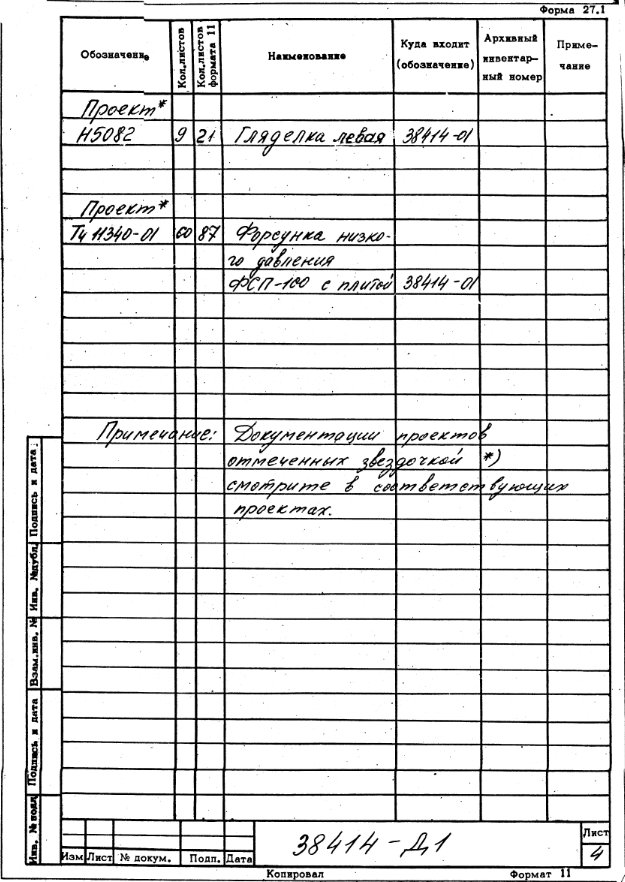 Форма 27.1
Обозначение Кол.листов Кол.листов формата 11 Наименование Куда входит (обозначение) Архивный инвентарный номер Примечание
Проект*
Н5082 9 21 Гляделка левая 38414-01
Проект*
Тч 11340-01 60 87 Форсунка низко-
го давления
ФСП-100 с плитой 38414-01
Примечание: Документации проектов
отмеченных звездочкой *)
смотрите в соответствующих
проектах.
Инв. № подл. Подпись и дата Взам.инв. № Инв. №дубл. Подпись и дата
38414-Д1
Лист
4
Изм Лист № докум. Подп. Дата
Копировал Формат 11